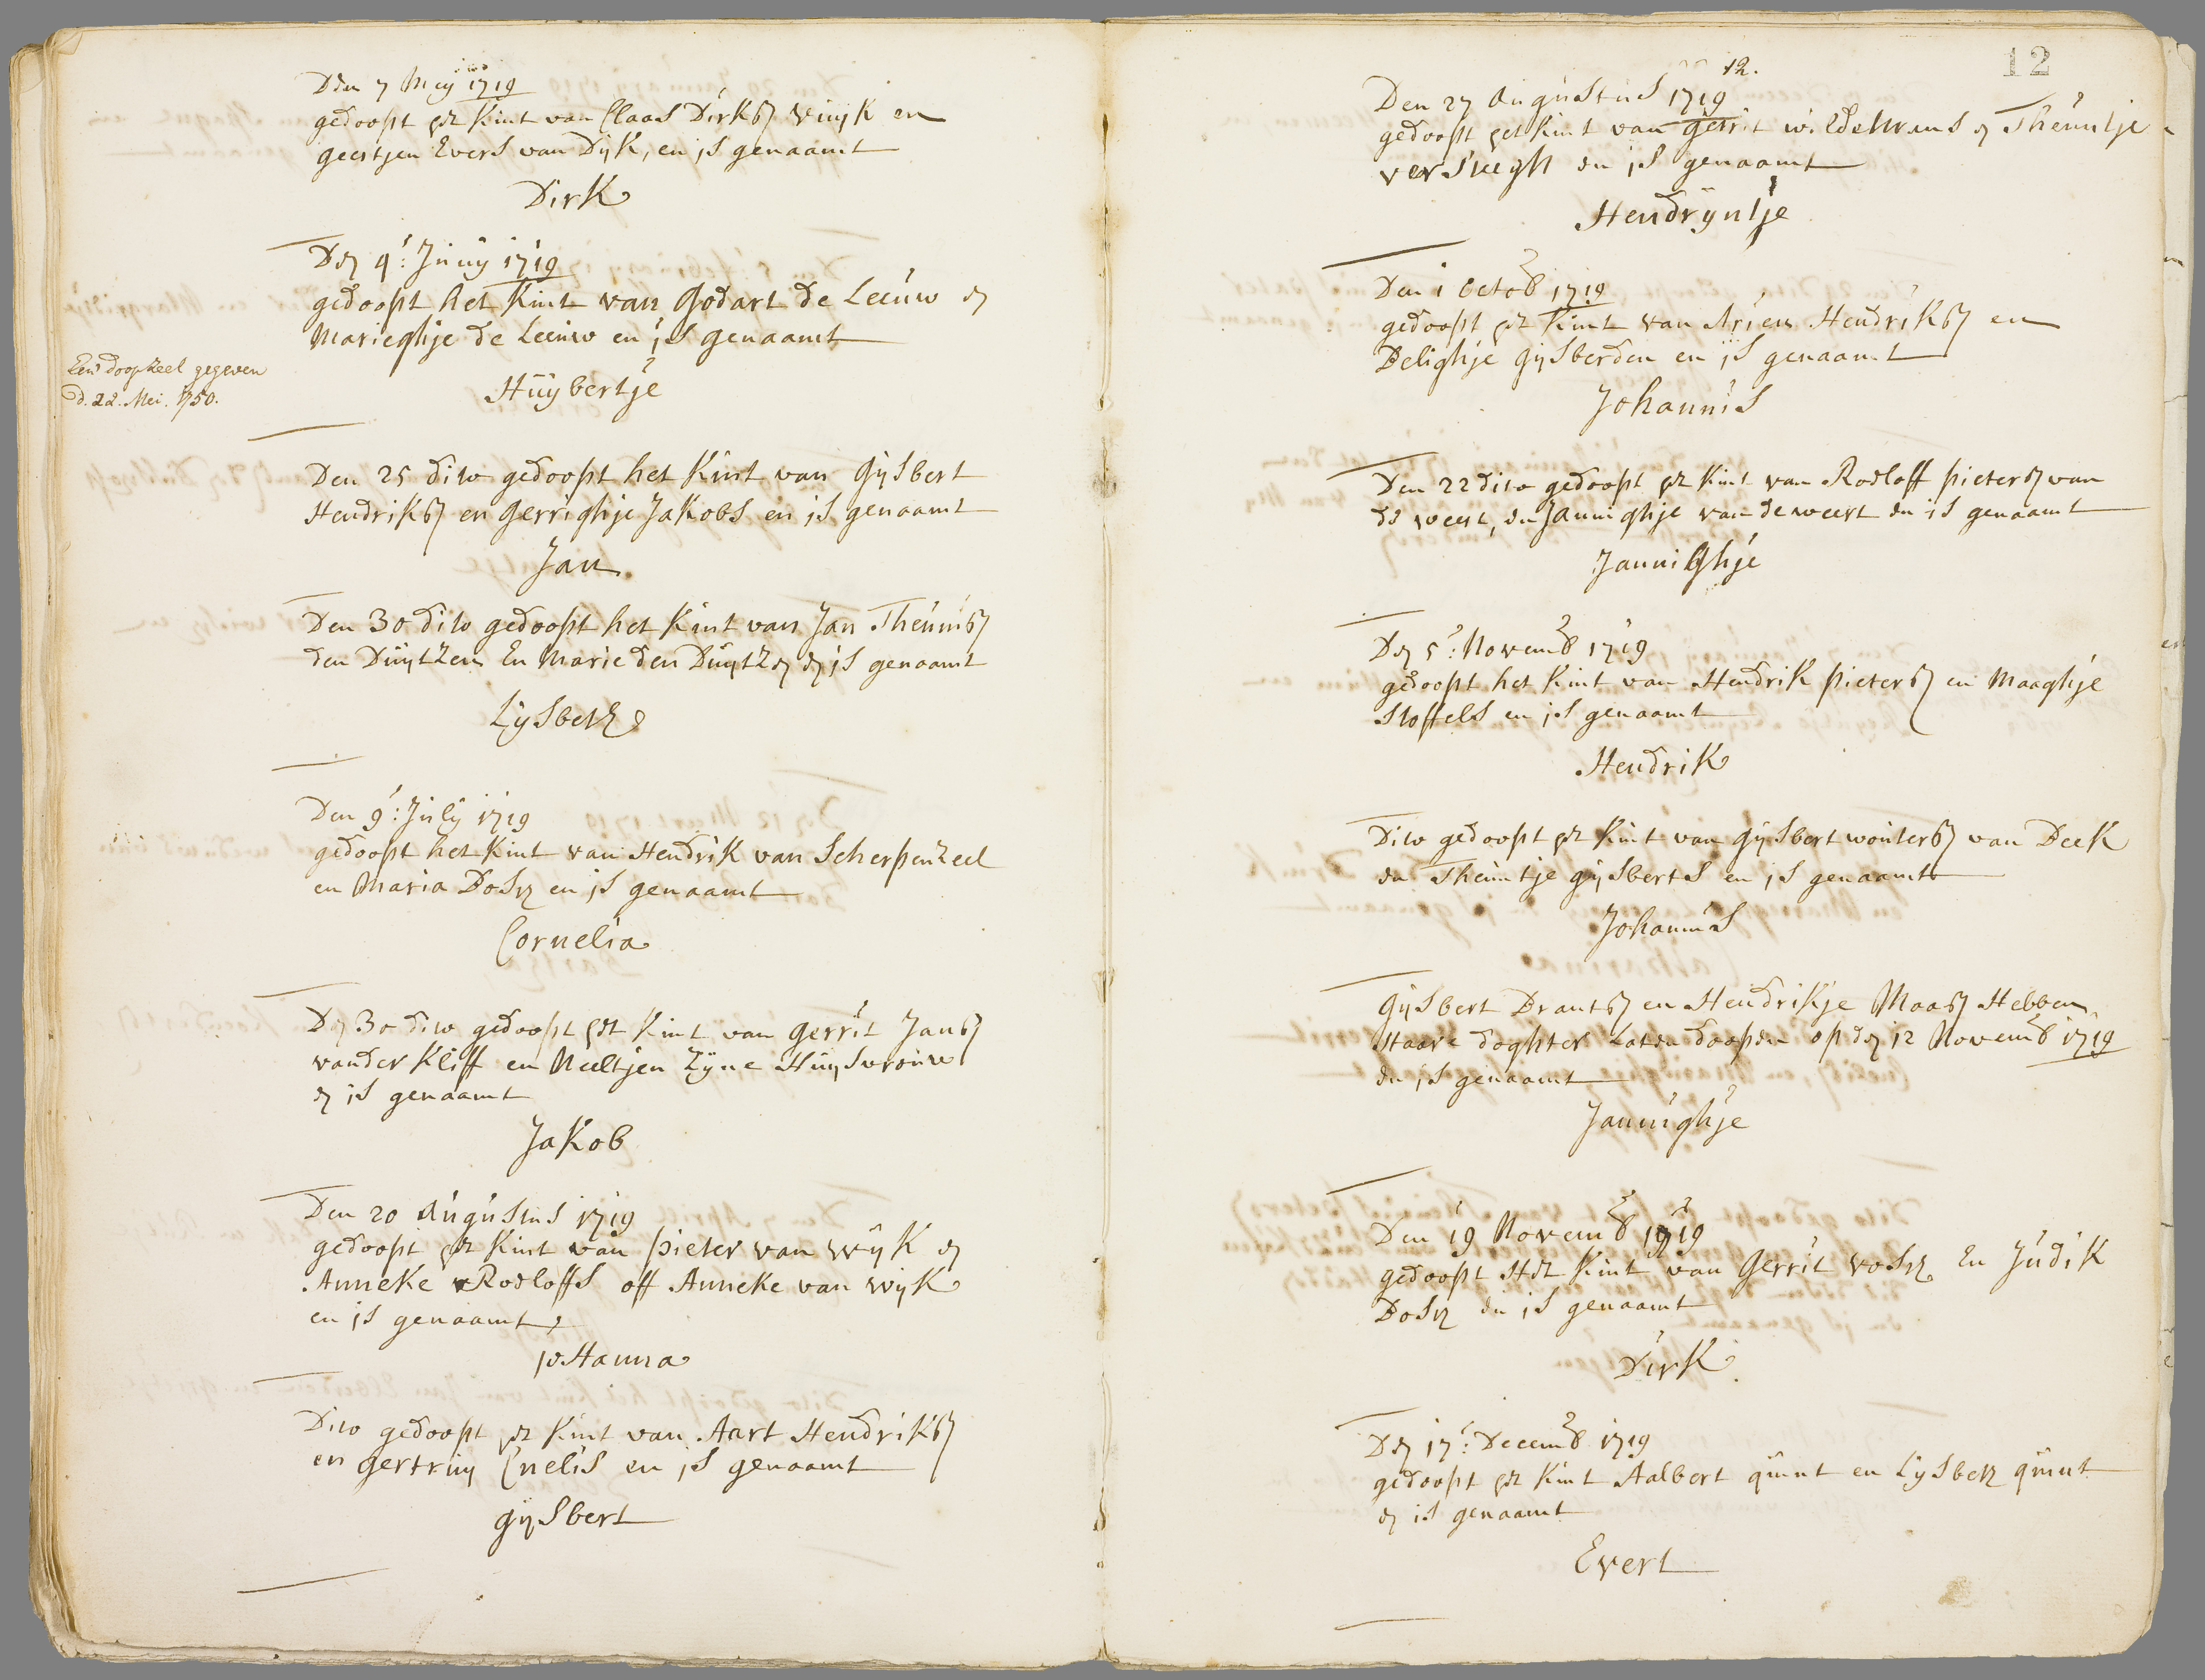 Den 7 Mey 1719
gedoopt het Kint van Claas Dirksz Vuijk en
geertjen Evers van Dijk, en is genaamt
Dirk
Den 4: Junij 1719
gedoopt het Kint van Godart de Leeuw en
Marieghje de Leeuw en is genaamt
Een doopzeel gegeven
d. 22. Mei. 1750.
Huijbertje
Den 25 dito gedoopt het Kint van Gijsbert
Hendriksz en Gerrighje Jakobs en is genaamt
Jan
Den 30 dito gedoopt het Kint van Jan Theunisz
den Duijtzen En Marie den Duijtzen en is genaamt
Lijsbeth
Den 9: Julij 1719
gedoopt het Kint van Hendrik van Scherpenzeel
en Maria Bosch en is genaamt
Cornelia
Den 30 dito gedoopt het Kint van Gerrit Jansz
vander Kliff en Neeltjen Zijne Huijsvrouw
en is genaamt
Jakob
Den 20 Augustus 1719
gedoopt het Kint van Pieter van Wijk en
Anneke Roeloffs off Anneke van Wijk
en is genaamt
Johanna
Dito gedoopt het Kint van Aart Hendriksz
en Gertruij Cnelis en is genaamt
Gijsbert
12
12.
Den 27 Augustus 1719
gedoopt het Kint van Gerrit Wildekrans en Theuntje
Versteegh en is genaamt
Hendrijntje
Den 1 Octob 1719
gedoopt het Kint van Arien Hendriksz en
Belighje Gijsberden en is genaamt
Johannis
Den 22 dito gedoopt het Kint van Roeloff Pietersz van
de Weert, en Jannighje van de Weert en is genaamt
Jannighje
Den 5: Novemb 1719
gedoopt het Kint van Hendrik Pietersz en Maaghje
Stoffels en is genaamt
Hendrik
Dito gedoopt het Kint van Gijsbert Woutersz van Beek
en Theuntje Gijsberts en is genaamt
Johannis
Gijsbert Brantsz en Hendrikje Maasz Hebben
Haare doghter Laten doopen op den 12 Novemb 1719
en is genaamt
Jannighje
Den 19 Novemb 1719
gedoopt Het Kint van Gerrit Vosch En Judik
Bosch en is genaamt
Dirk
Den 17: Decemb 1719
gedoopt het Kint Aalbert quint en Lijsbeth quint
en is genaamt
Evert